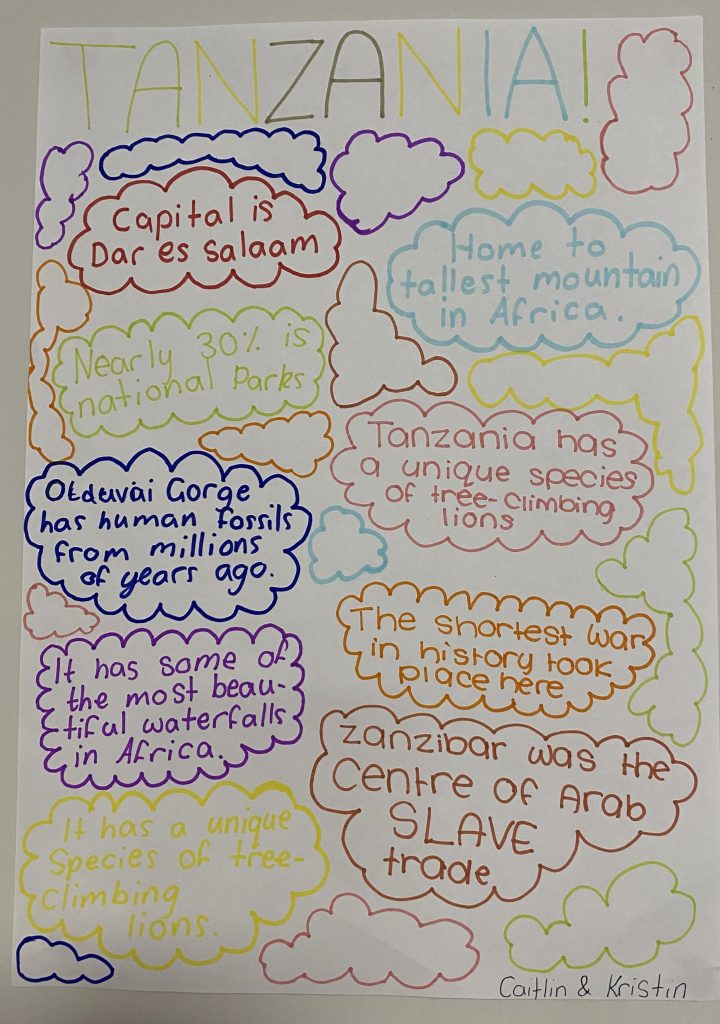 TANZANIA!
Capital is
Dar es Salaam
Home to
tallest mountain
in Africa.
Nearly 30% is
national Parks
Tanzania has
a unique species
of tree-climbing
lions
Olduvai Gorge
has human fossils
from millions
of years ago.
The shortest war
in history took
place here
It has some of
the most beau-
tiful waterfalls
in Africa.
Zanzibar was the
Centre of Arab
SLAVE
trade
It has a unique
Species of tree-
climbing
lions.
Caitlin & Kristin